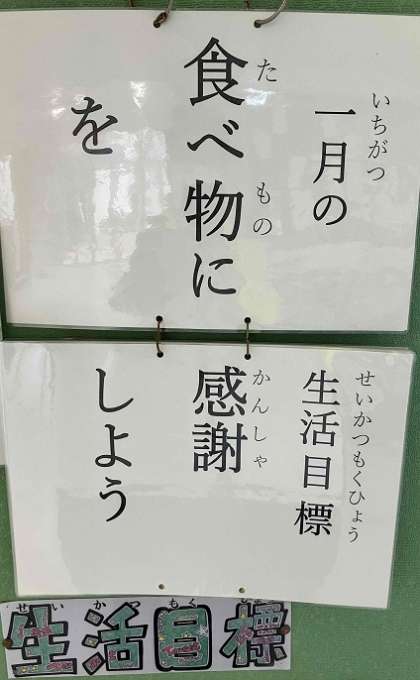 いちがつ せいかつもくひょう
一月の生活目標
た もの かんしゃ
食べ物に感謝
をしよう
せい かつ もく
生活目標